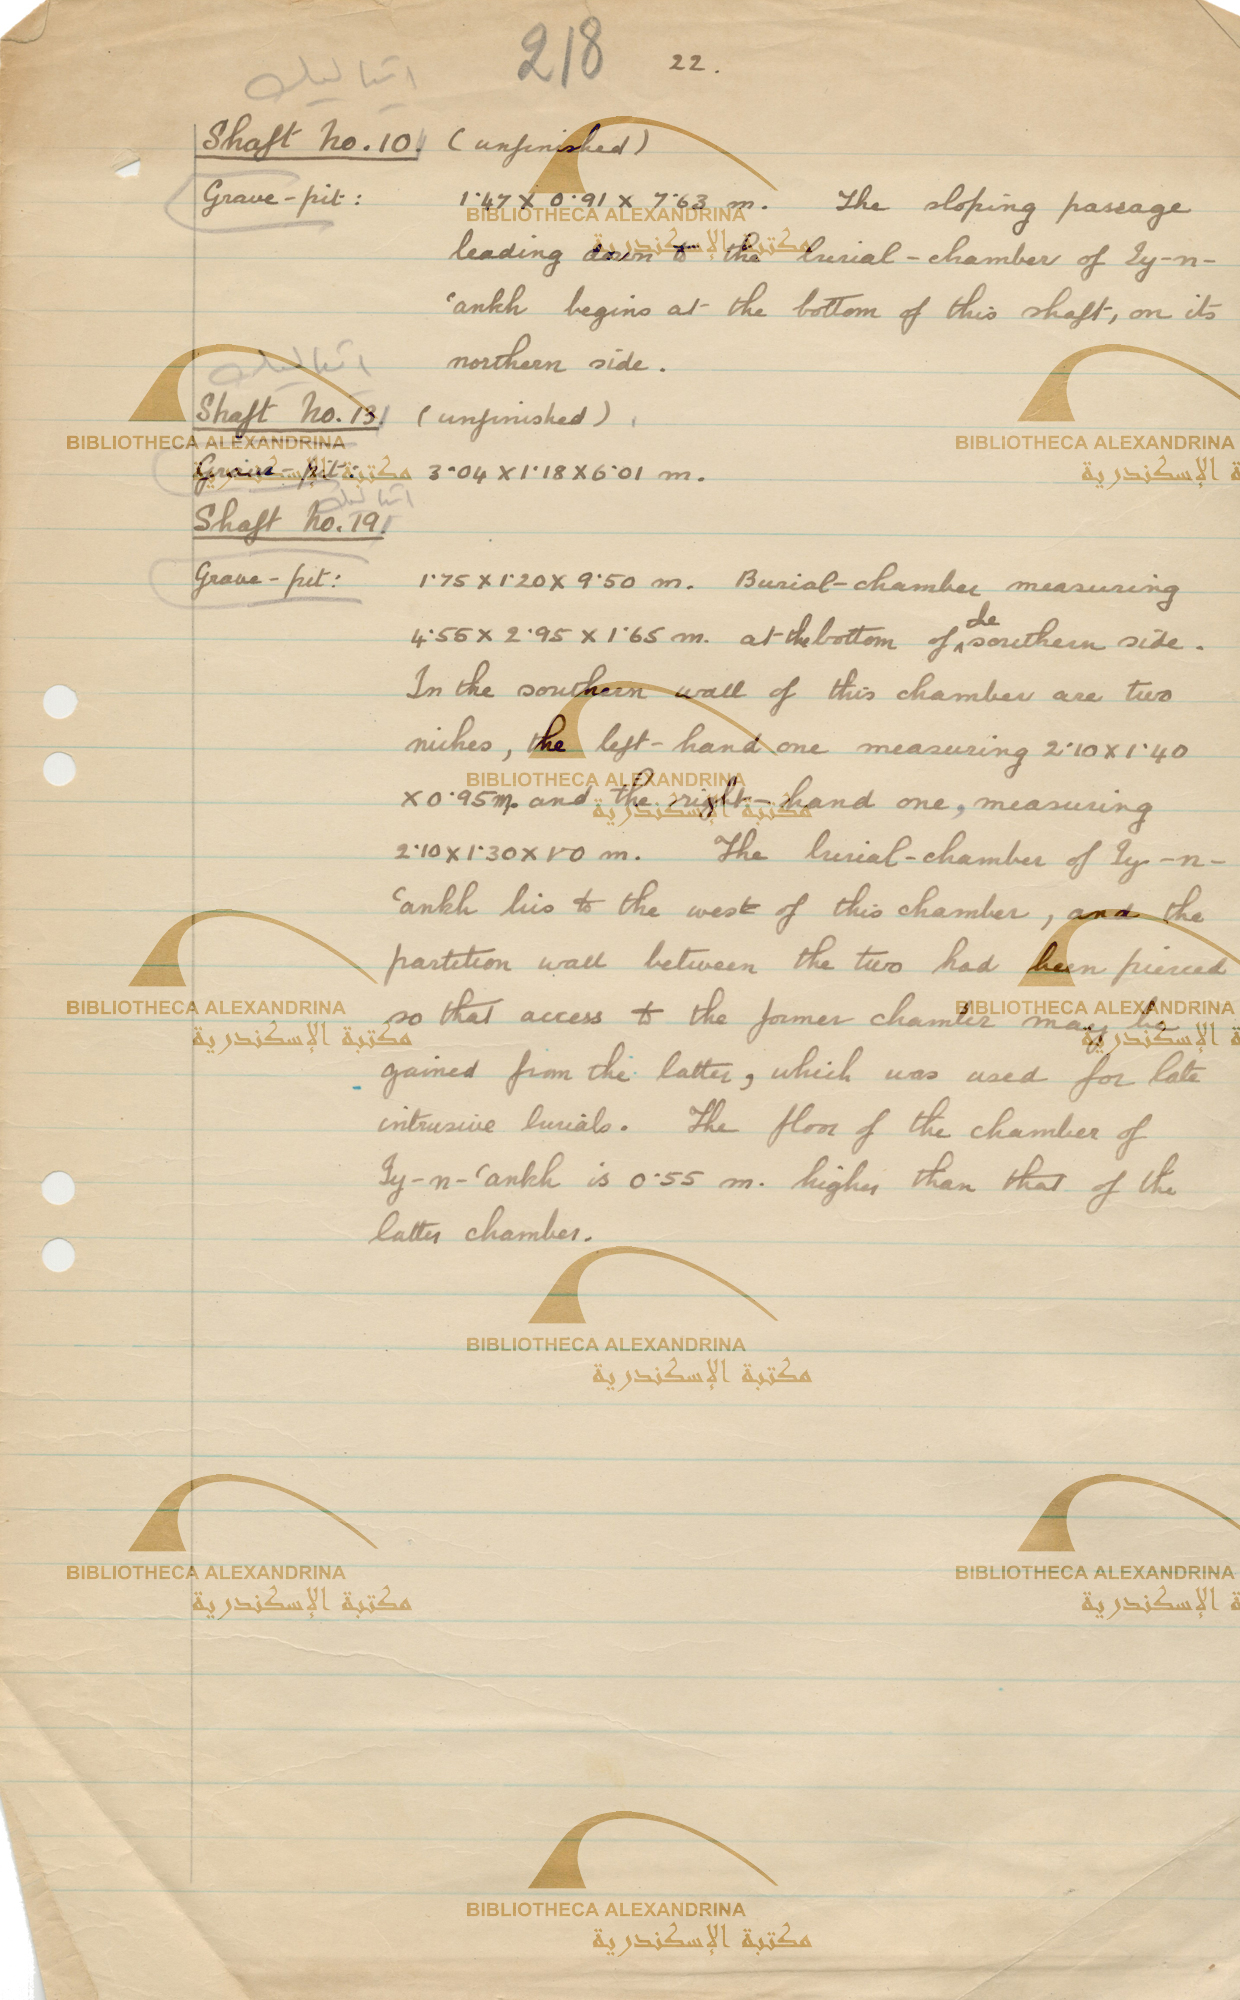 218
22.
ايتاليك
Shaft No. 10. (unfinished)
Grave-pit: 1·47 x 0·91 x 7·63 m. The sloping passage
leading down to the burial-chamber of Iy-n-
‘ankh begins at the bottom of this shaft, on its
northern side.
ايتاليك
Shaft No. 13. (unfinished)
Grave-pit: 3·04 x 1·18 x 6·01 m.
ايتاليك
Shaft No. 19.
Grave-pit: 1·75 x 1·20 x 9·50 m. Burial-chamber measuring
4·55 x 2·95 x 1·65 m. at the bottom of the southern side.
In the southern wall of this chamber are two
niches, the left-hand one measuring 2·10 x 1·40
x 0·95 m. and the right-hand one, measuring
2·10 x 1·30 x 1·0 m. The burial-chamber of Iy-n-
‘ankh lies to the west of this chamber, and the
partition wall between the two had been pierced
so that access to the former chamber may be
gained from the latter, which was used for late
intrusive burials. The floor of the chamber of
Iy-n-‘ankh is 0·55 m. higher than that of the
latter chamber.
BIBLIOTHECA ALEXANDRINA
مكتبة الإسكندرية